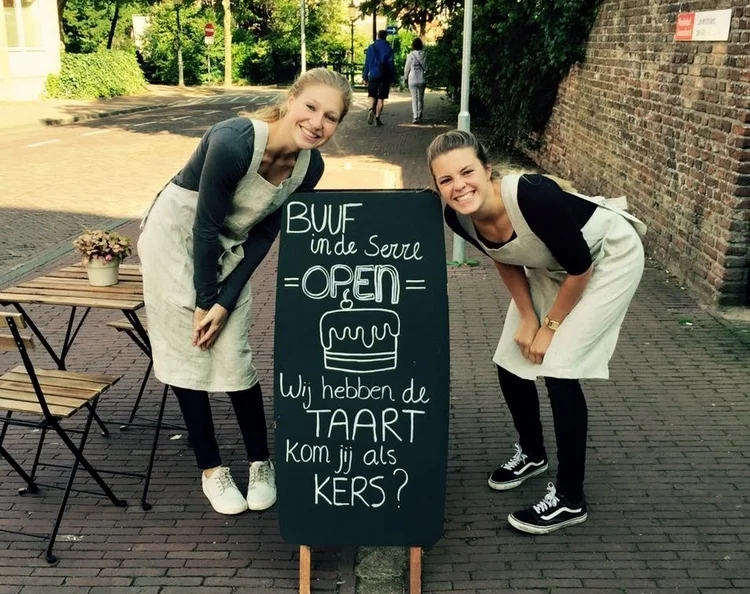 BUUF
in de Serre
= OPEN =
Wij hebben de
TAART
kom jij als
KERS?